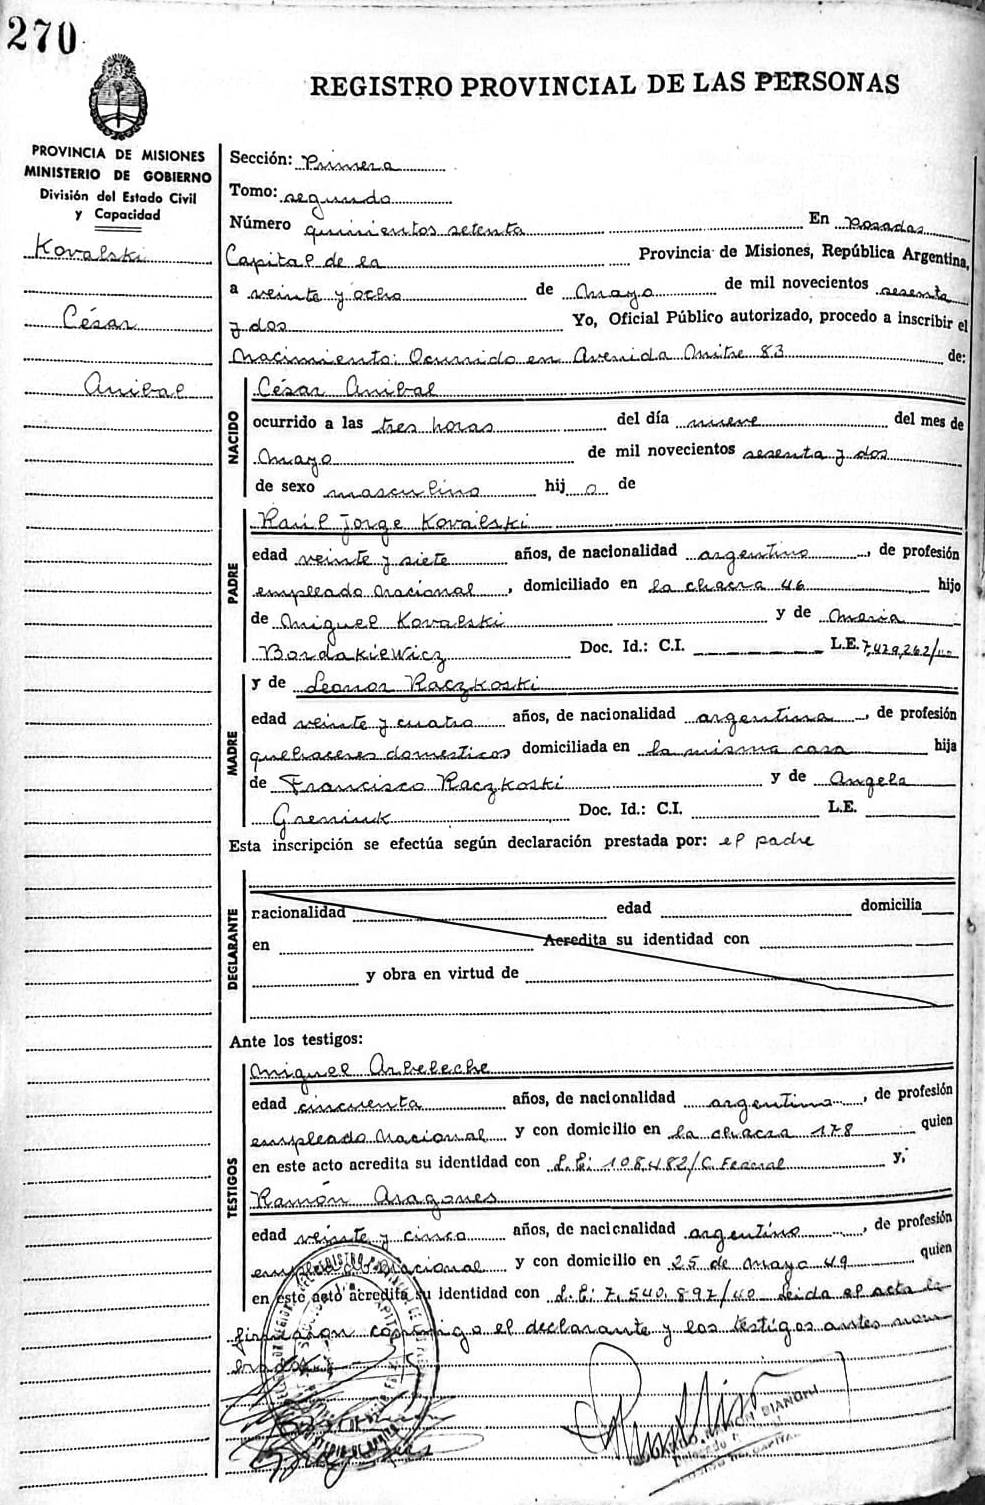 270
REGISTRO PROVINCIAL DE LAS PERSONAS
PROVINCIA DE MISIONES
MINISTERIO DE GOBIERNO
División del Estado Civil
y Capacidad
Kovalski
César
Anibal
Sección: Primera
Tomo: segundo
Número quinientos setenta En Posadas
Capital de la Provincia de Misiones, República Argentina,
a veinte y ocho de Mayo de mil novecientos sesenta
y dos Yo, Oficial Público autorizado, procedo a inscribir el
Nacimiento: Ocurrido en Avenida Mitre 83 de:
NACIDO
César Anibal
ocurrido a las tres horas del día nueve del mes de
Mayo de mil novecientos sesenta y dos
de sexo masculino hij o de
PADRE
Raúl Jorge Kovalski
edad veinte y siete años, de nacionalidad argentino, de profesión
empleado Nacional, domiciliado en la chacra 46 hijo
de Miguel Kovalski y de Maria
Bordakiewicz Doc. Id.: C.I. L.E. 7,479,262/
MADRE
y de Leonor Raczkoski
edad veinte y cuatro años, de nacionalidad argentina, de profesión
quehaceres domesticos domiciliada en la misma casa hija
de Francisco Raczkoski y de Angela
Greniuk Doc. Id.: C.I. L.E.
Esta inscripción se efectúa según declaración prestada por: el padre
DECLARANTE
nacionalidad edad domicilia
en Acredita su identidad con
y obra en virtud de
Ante los testigos:
TESTIGOS
Miguel Arbeleche
edad cincuenta años, de nacionalidad argentino, de profesión
empleado Nacional y con domicilio en la chacra 178 quien
en este acto acredita su identidad con L.E: 108482/C. Federal y,
Ramón Aragones
edad veinte y cinco años, de nacionalidad argentino, de profesión
empleado Nacional y con domicilio en 25 de Mayo 49 quien
en este acto acredita su identidad con L.E: 7,540,897/40 Leida el acta la
firmaron conmigo el declarante y los testigos antes nom
brados
BIANCHI